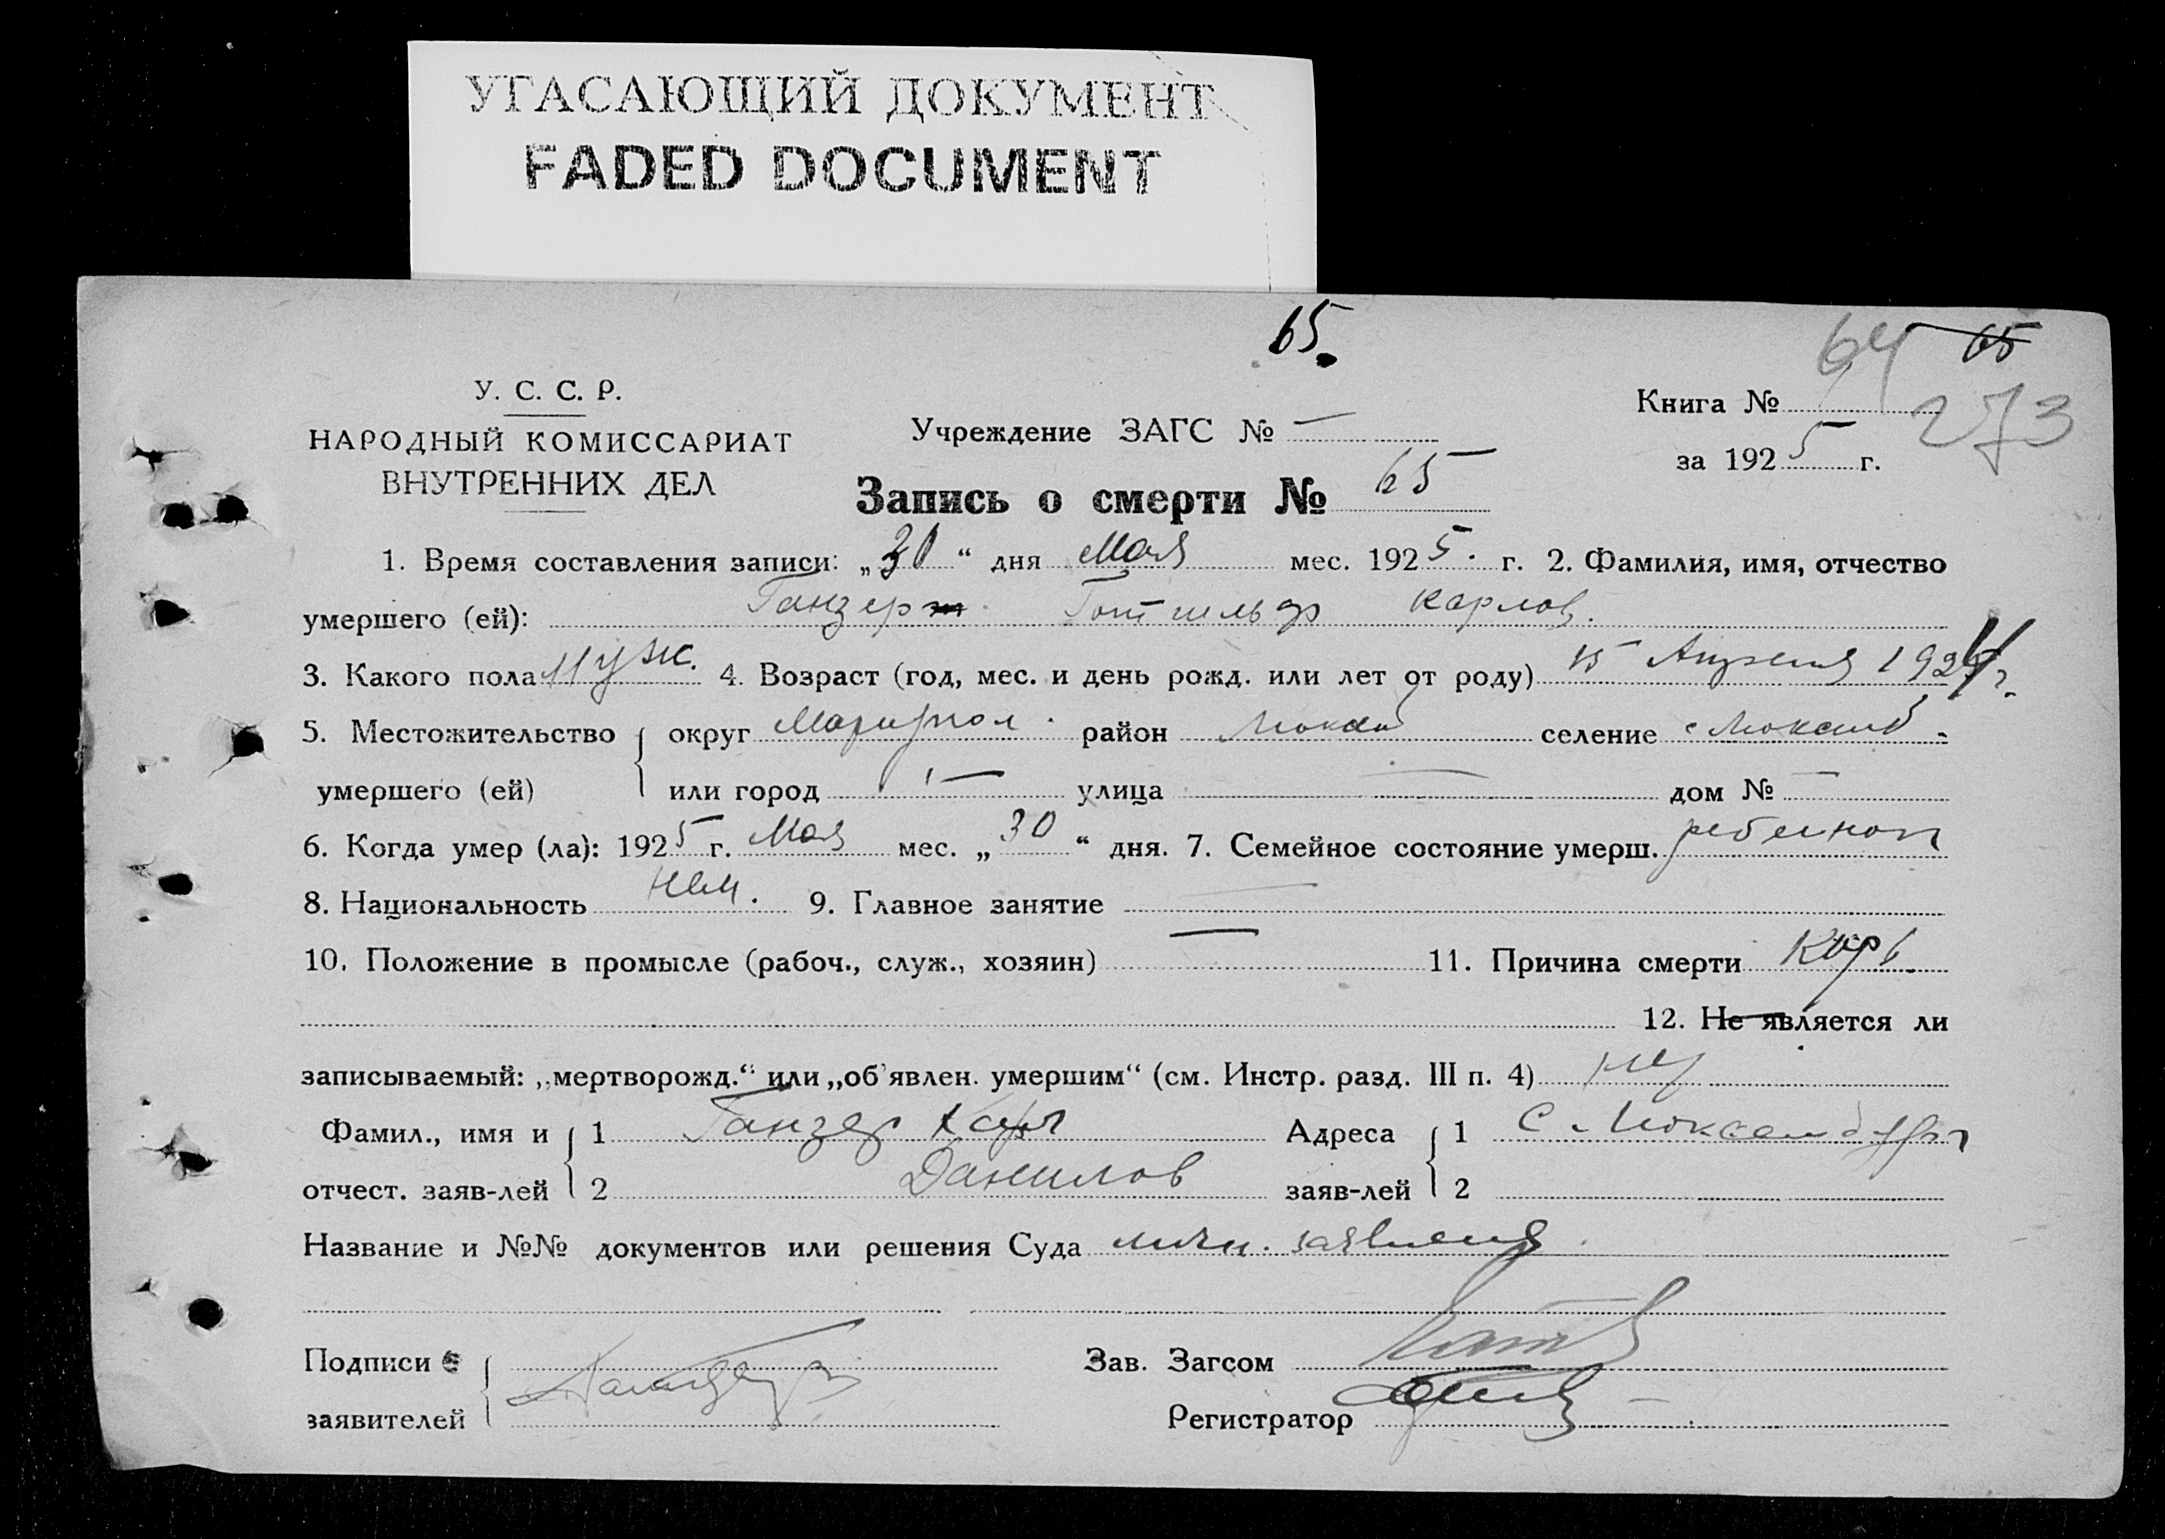 УГАСАЮЩИЙ ДОКУМЕНТ
FADED DOCUMENT
65.
64 65
273
У. С. С. Р.
НАРОДНЫЙ КОМИССАРИАТ
ВНУТРЕННИХ ДЕЛ
Учреждение ЗАГС № —
Запись о смерти № 65
Книга №
за 1925 г.
1. Время составления записи: „30“ дня Мая мес. 1925. г. 2. Фамилия, имя, отчество
умершего (ей): Ганзер Готгильф Карлов.
3. Какого пола Муж. 4. Возраст (год, мес. и день рожд. или лет от роду) 15 Апреля 1924 г.
5. Местожительство округ Мариупол. район Люксемб селение Люксемб.
умершего (ей) или город — улица — дом № —
6. Когда умер (ла): 1925 г. Мая мес. „30“ дня. 7. Семейное состояние умерш. ребенок
8. Национальность нем. 9. Главное занятие —
10. Положение в промысле (рабоч., служ., хозяин) — 11. Причина смерти Корь.
12. Не является ли
записываемый: „мертворожд.“ или „об'явлен. умершим“ (см. Инстр. разд. III п. 4) нет
Фамил., имя и 1 Ганзер Карл Адреса 1 С. Люксембург
отчест. заяв-лей 2 Данилов заяв-лей 2
Название и №№ документов или решения Суда личн. заявления.
Подписи Зав. Загсом
заявителей Регистратор